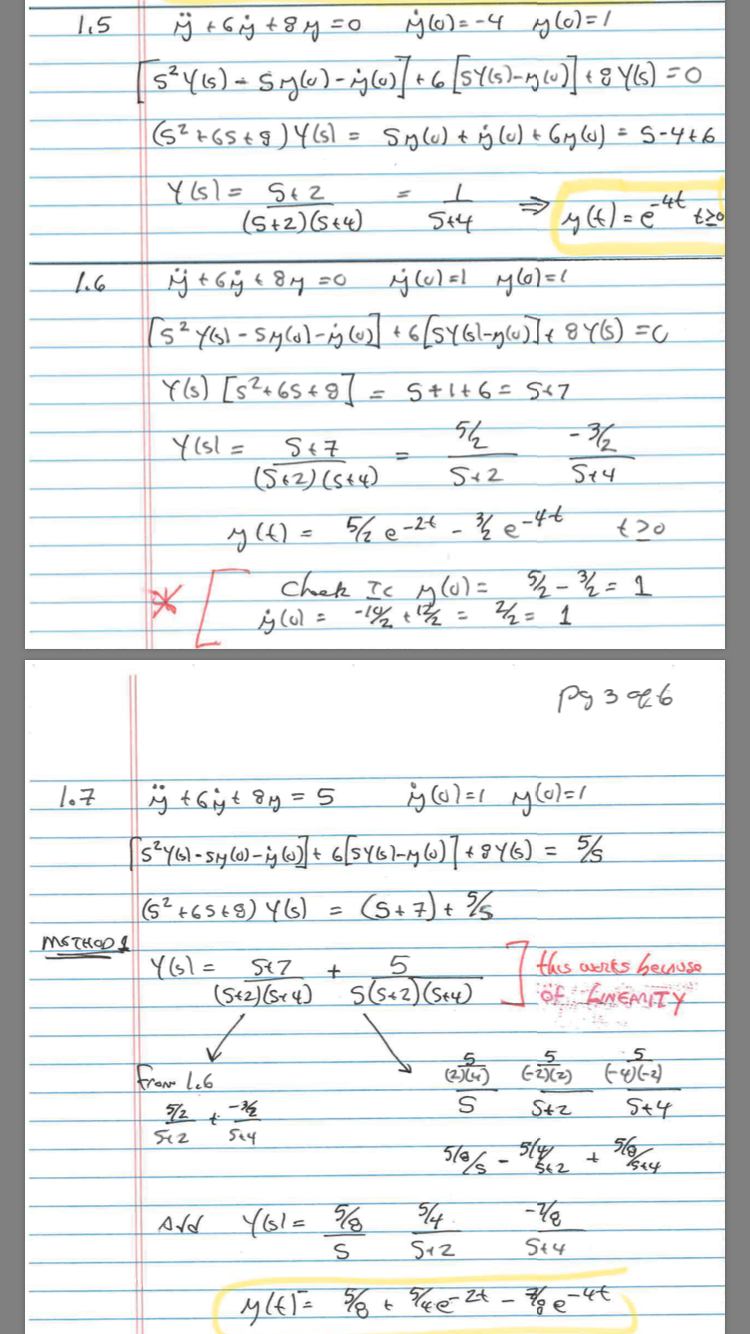 1.5 ÿ + 6ẏ + 8y = 0 ẏ(0) = -4 y(0) = 1
[S²Y(s) - Sy(0) - ẏ(0)] + 6[SY(s) - y(0)] + 8Y(s) = 0
(S² + 6S + 8)Y(s) = Sy(0) + ẏ(0) + 6y(0) = S - 4 + 6
Y(s) = (S+2)/((S+2)(S+4)) = 1/(S+4) ⇒ y(t) = e^{-4t} t≥0
1.6 ÿ + 6ẏ + 8y = 0 ẏ(0) = 1 y(0) = 1
[S²Y(s) - Sy(0) - ẏ(0)] + 6[SY(s) - y(0)] + 8Y(s) = 0
Y(s)[S² + 6S + 8] = S + 1 + 6 = S + 7
Y(s) = (S+7)/((S+2)(S+4)) = (5/2)/(S+2) (-3/2)/(S+4)
y(t) = 5/2 e^{-2t} - 3/2 e^{-4t} t≥0
Check IC y(0) = 5/2 - 3/2 = 1
ẏ(0) = -10/2 + 12/2 = 2/2 = 1
pg 3 of 6
1.7 ÿ + 6ẏ + 8y = 5 ẏ(0) = 1 y(0) = 1
[S²Y(s) - Sy(0) - ẏ(0)] + 6[SY(s) - y(0)] + 8Y(s) = 5/S
(S² + 6S + 8)Y(s) = (S + 7) + 5/S
METHOD 1
Y(s) = (S+7)/((S+2)(S+4)) + 5/(S(S+2)(S+4)) this works because
OF LINEARITY
From 1.6
(5/2)/(S+2) + (-3/2)/(S+4)
(5/((2)(4)))/S (5/((-2)(2)))/(S+2) (5/((-4)(-2)))/(S+4)
5/8/S - 5/4/S+2 + 5/8/S+4
Add Y(s) = (5/8)/S (5/4)/(S+2) (-7/8)/(S+4)
y(t) = 5/8 + 5/4 e^{-2t} - 7/8 e^{-4t}